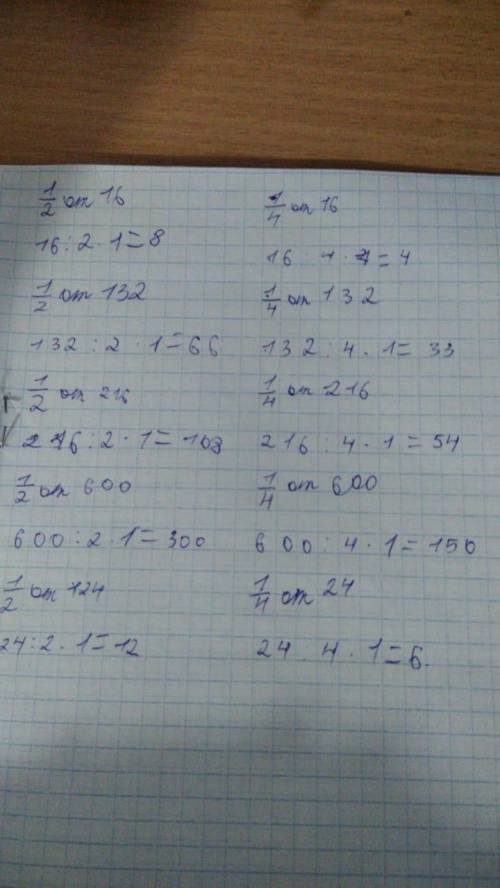 1/2 от 16
16 : 2 · 1 = 8
1/2 от 132
132 : 2 · 1 = 66
1/2 от 216
216 : 2 · 1 = 108
1/2 от 600
600 : 2 · 1 = 300
1/2 от 124
24 : 2 · 1 = 12
1/4 от 16
16 : 4 · 1 = 4
1/4 от 132
132 : 4 · 1 = 33
1/4 от 216
216 : 4 · 1 = 54
1/4 от 600
600 : 4 · 1 = 150
1/4 от 24
24 . 4 · 1 = 6.